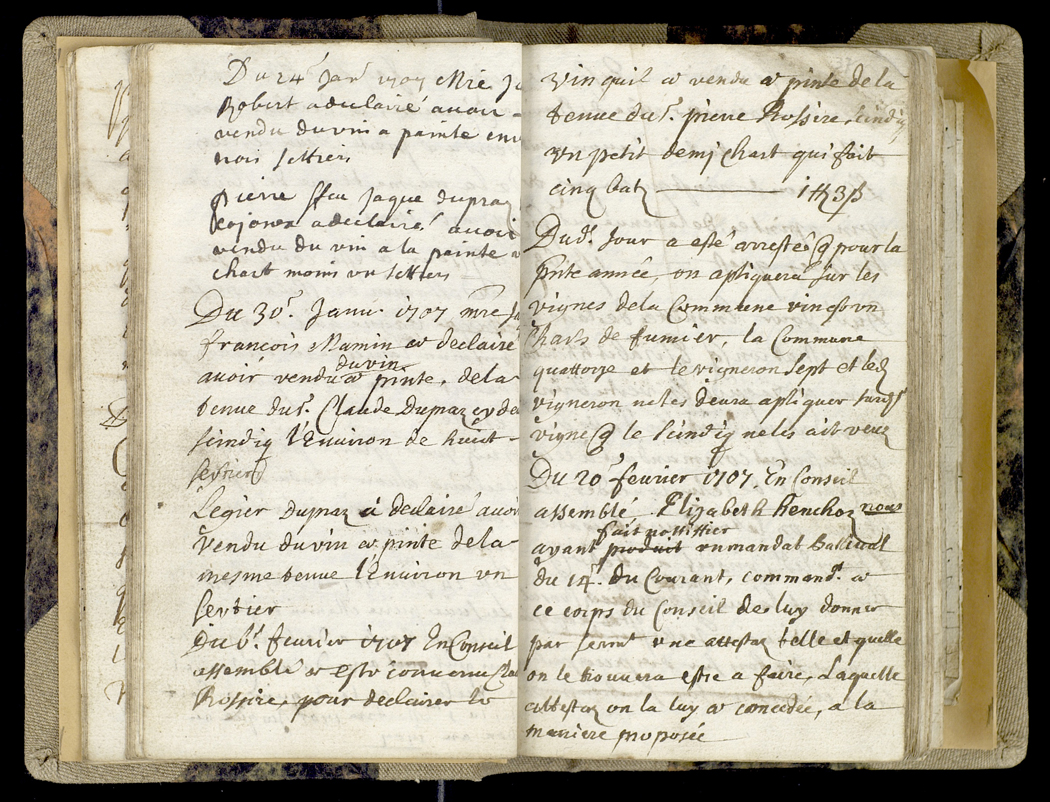 Du 24.e Janr 1707 Mre Ja
Robert a declairé avoir
vendu du vin a painte env
trois settiers
Pierre ffeu Jaque Dupraz
Cojonex a declairé avoir
vendu du vin a la painte
chart moins un settiers
Du 30.e Janv. 1707 mre Ja
françois Mamin a declairé
avoir vendu du vin a pinte, dela
tenue du Sr. Claude Dupraz cy de
scindiq l'Environ de huict
settiers
Legier Dupraz à declairé avoir
vendu du vin a pinte de la
mesme tenue l'Environ vn
settier
Du 6.e fevrier 1707 En Conseil
assemblé a Esté convenu Cla
Rossire, pour declairer le
vin quil a vendu a pinte de la
tenue du Sr. pierre Rossire Scindiq
vn petit demj Chart qui fait
cinq batz 1 ff 3 ß
Dud. Jour a esté arresté q pour la
pnte année on apliquera sur les
vignes dela Commune vingt vn
Chars de fumier, la Commune
quattorze et le vigneron Sept et led
vigneron ne les devra apliquer surd.
vigne q le Scindiq ne les ait veuz
Du 20.e fevrier 1707 En Conseil
assemblé Elizabeth Henchoz nous
ayant fait nottiffier vn mandat Ballival
du 14.e du Courant, command.t a
ce corps du Conseil de luy donner
par serm.t vne attestaz telle et quelle
on le trouvera estre a faire, Laquelle
attestaz on la luy a concedée, a la
maniere proposée